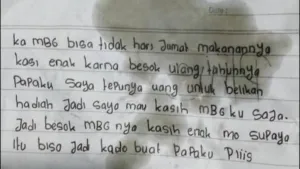 ka MBG bisa tidak hari Jumat makanannya
kasi enak karna besok ulang tahunnya
Papaku saya tepunya uang untuk belikan
hadiah Jadi saya mau kasih MBG ku saja.
Jadi besok MBG nya kasih enak mo supaya
itu biso Jadi kado buat PaPaku Pliis